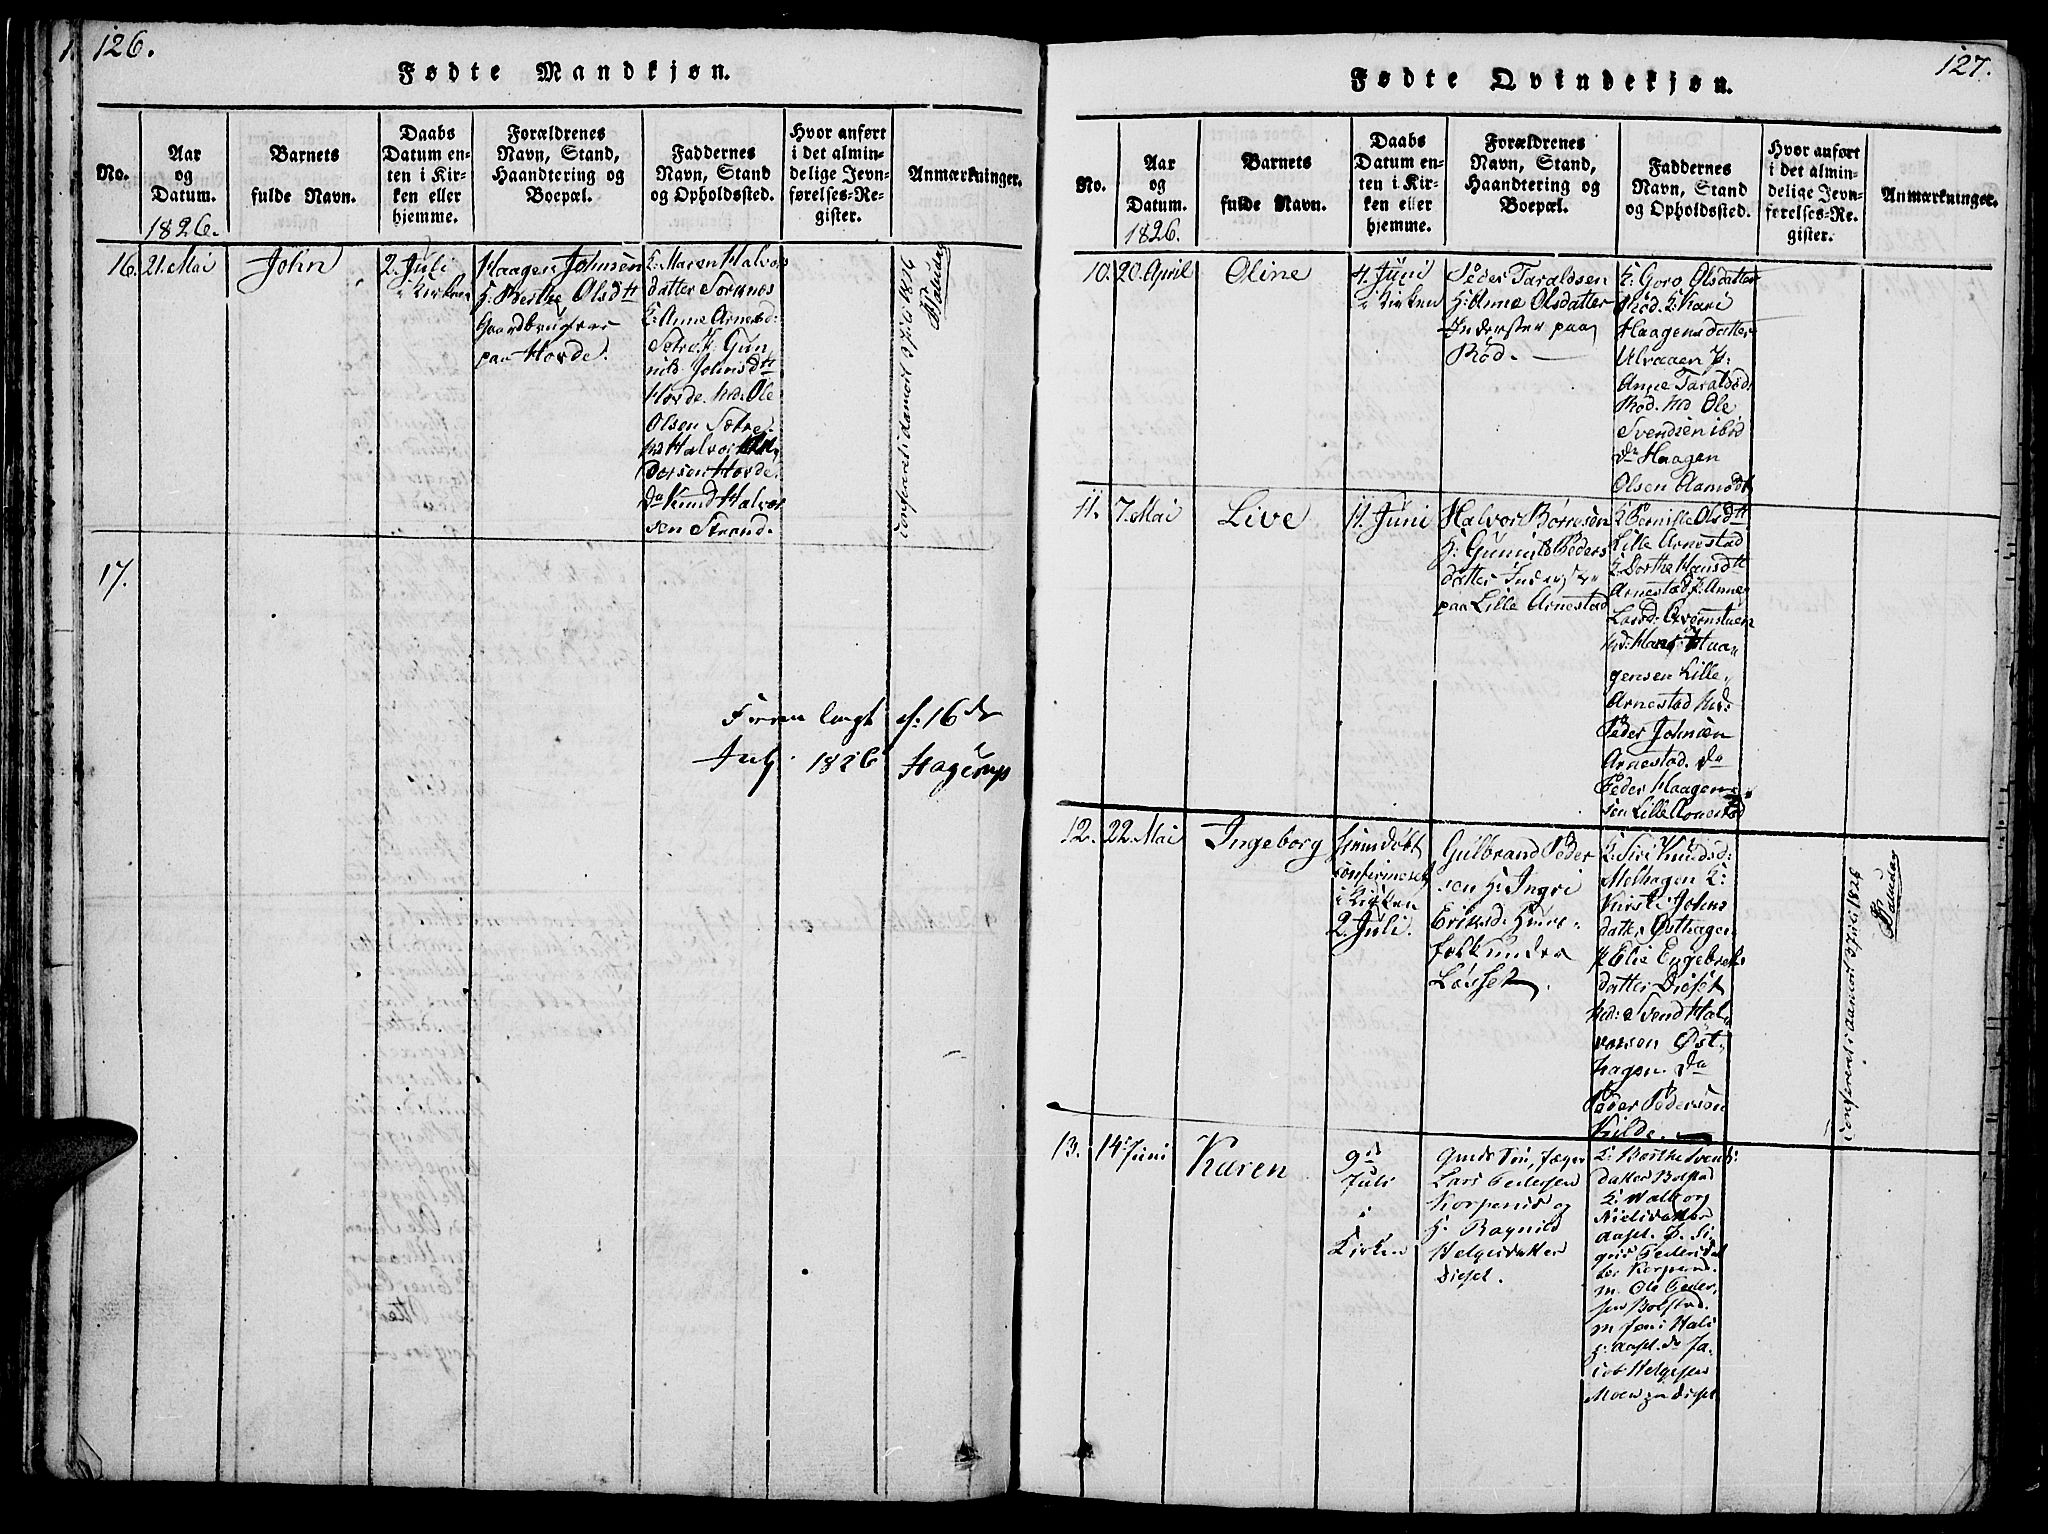 126.
Fødte Mandkjøn.
No.
Aar
og
Datum.
1826.
Barnets
fulde Navn.
Daabs
Datum en-
ten i Kir-
ken eller
hjemme.
Forældrenes
Navn, Stand,
Haandtering og
Boepæl.
Faddernes
Navn, Stand
og Opholdssted.
Hvor anført
i det almin-
delige Jevn-
førelses-Re-
gister.
Anmærkninger.
16.
21. Mai
John
2. Juli
i Kirken
Haagen Johnsen
H: Berthe Olsdtt
Gaardbrugere
paa Horde.
K: Maren Halvors
datter
K: Anne Arnesd:
Sætre. P. Gun
nild Johnsdtt
Horde. Md. Ole
Olsen Sætre.
Md Halvor
Horde.
Da Knud Halvor
sen Strand.
Confereret i Aamot 3 Juli 1826
17.
1826 Hagerup
127.
Fødte Qvindekjøn.
No.
Aar
og
Datum.
1826.
Barnets
fulde Navn.
Daabs
Datum en-
ten i Kir-
ken eller
hjemme.
Forældrenes
Navn, Stand,
Haandtering og
Boepæl.
Faddernes
Navn, Stand
og Opholdssted.
Hvor anført
i det almin-
delige Jevn-
førelses-Re-
gister.
Anmærkninger.
10.
20. April
Oline
4. Juni
i Kirken
Peder Taraldsen
H: Anne Olsdatter
Inderster paa
Rød.
K: Goro Olsdatter
Rød. K: Kari
Haagensdatter
Ulvaaen P:
Anne Taraldsd:
Rød. Md Ole
Svendsen ibid
Da Haagen
Olsen Aamodt
11.
7. Mai
Live
11. Juni
Halvor Børresen
H: Gunild Peders
datter Inderster
paa Lille Arnestad
K Bernitte Olsdtt
Lille Arnestad
K Dorthe Hansdtt
Arnestad P. Anne
Larsd: Qvernstuen
Md: Hans Haa
gensen Lille
Arnestad Md:
Peder Johnsen
Arnestad. Da
Peder Haagen
sen Lille Arnestad
12.
22. Mai
Ingeborg
Hiemdøbt
confirmeret
i Kirken
2. Juli.
Gulbrand Peder
sen H: Ingri
Eriksd: Huus-
folk under
Løsset.
K: Siri Knudsd:
Melhagen K:
Kirsti Johns
datter Østhagen
P. Elie Engebrets
datter Diset
Md: Svend Hal
vorsen Øst
hagen. Da
Peder Pedersen
Kilde.
Confereret i Aamot 3 Juli 1826
13.
14 Juni
Karen
9de
Juli
i
Kirken
Lars Pedersen
og
H. Ragnild
Helgesdatter
Diset.
K: Berthe Svends
datter Bolstad
K. Walborg
Nielsdatter
P. Si
gnis Pedersdat
ter
M. Ole Peder
sen Bolstad.
Da Ja
cob Helgesen